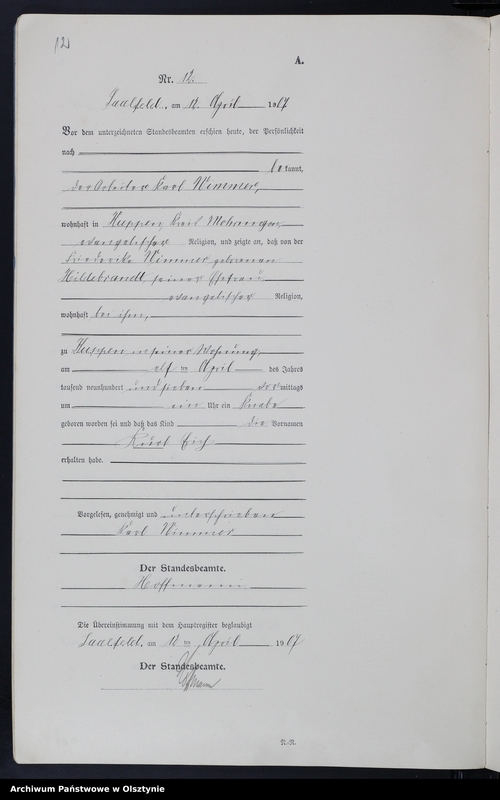 12
A.
Nr. 12.
Saalfeld, am 12. April 1907
Vor dem unterzeichneten Standesbeamten erschien heute, der Persönlichkeit
nach
bekannt,
der Arbeiter Karl Wimmer,
wohnhaft in Kuppen, Kreis Mohrungen,
evangelischer Religion, und zeigte an, daß von der
Friederike Wimmer geborenen
Hildebrandt, seiner Ehefrau
evangelischer Religion,
wohnhaft bei ihm,
zu Kuppen in seiner Wohnung
am elf ten April des Jahres
tausend neunhundert und sieben vormittags
um ein Uhr ein Knabe
geboren worden sei und daß das Kind die Vornamen
Kurt Erich
erhalten habe.
Vorgelesen, genehmigt und unterschrieben
Karl Wimmer
Der Standesbeamte.
Hoffmann
Die Übereinstimmung mit dem Hauptregister beglaubigt
Saalfeld, am 12 ten April 1907
Der Standesbeamte.
Hoffmann
Archiwum Państwowe w Olsztynie